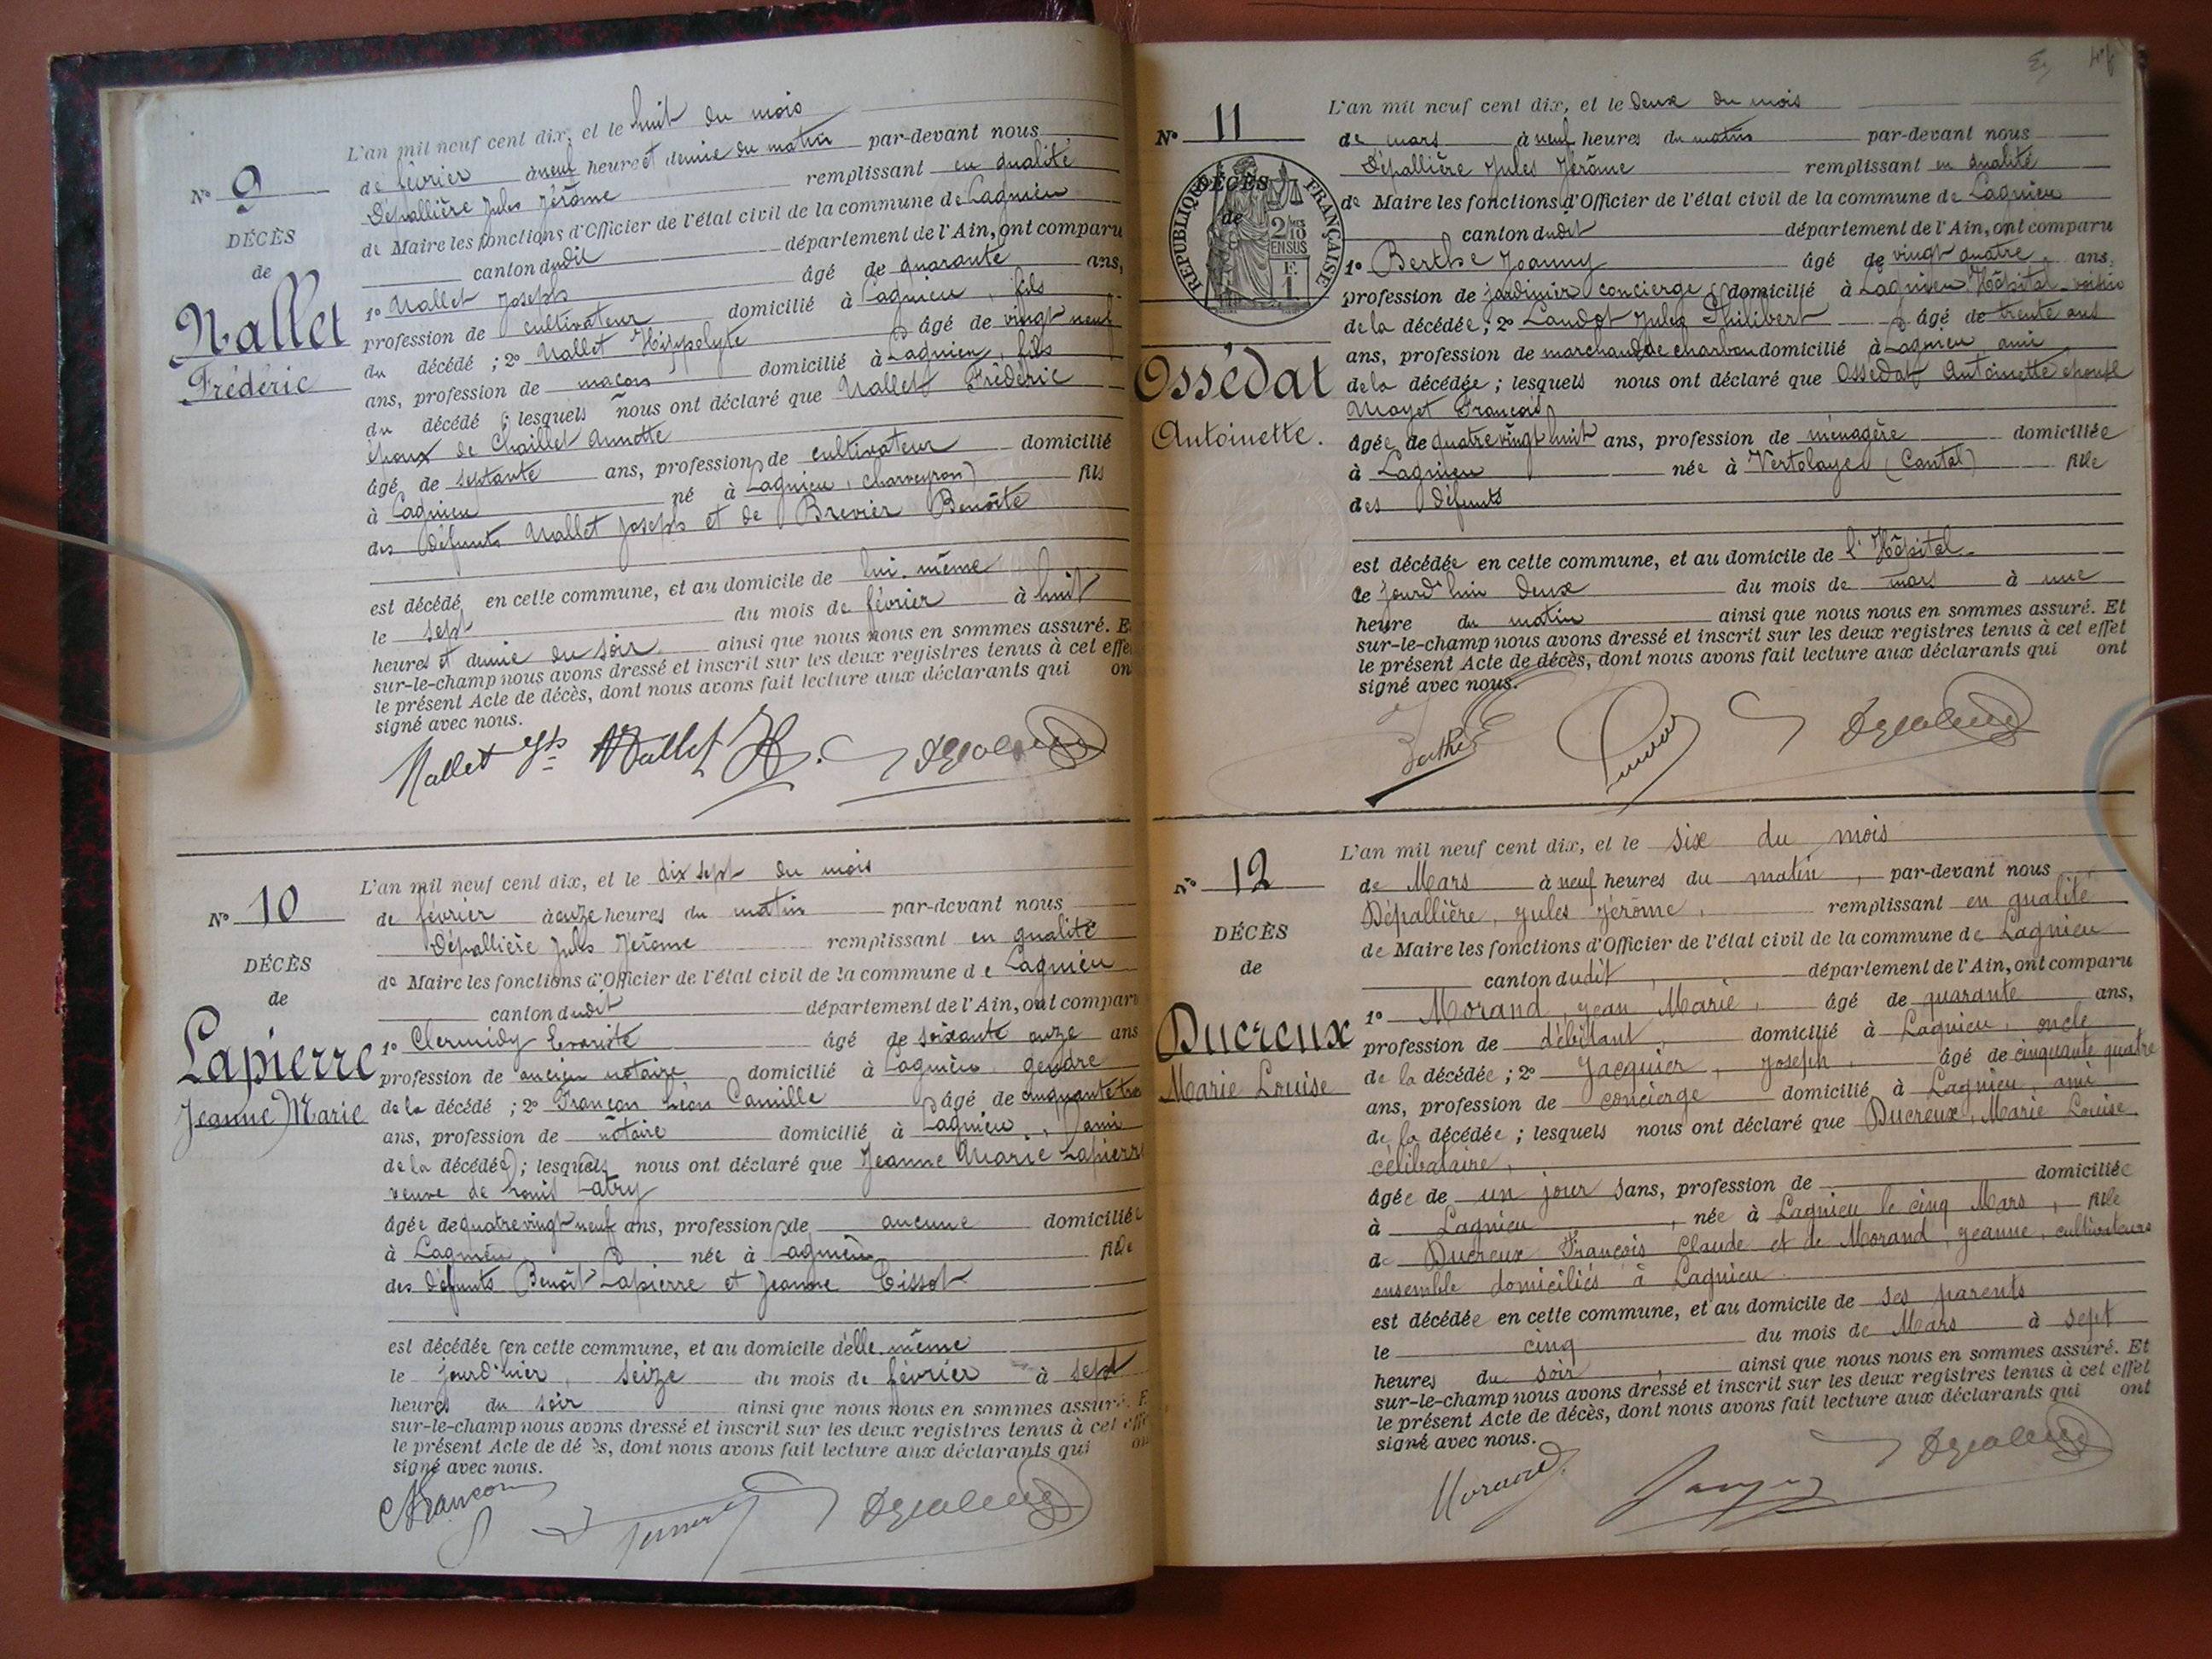 L'an mil neuf cent dix, et le huit du mois
N° 9
de février à neuf heures et demie du matin par-devant nous
Dépallière Jules Jérôme remplissant en qualité
DÉCÈS
de Maire les fonctions d'Officier de l'état civil de la commune de Lagnieu
de
canton dudit département de l'Ain, ont comparu
Nallet
Frédéric
1° Nallet Joseph âgé de quarante ans,
profession de cultivateur domicilié à Lagnieu, fils
du décédé ; 2° Nallet Hippolyte âgé de vingt neuf
ans, profession de maçon domicilié à Lagnieu, fils
du décédé ; lesquels nous ont déclaré que Nallet Frédéric
époux de Chaillet Annette
âgé de septante ans, profession de cultivateur domicilié
à Lagnieu né à Lagnieu, (Charveyron) fils
des défunts Nallet Joseph et de Brevier Benoîte
est décédé en cette commune, et au domicile de lui-même
le sept du mois de février à huit
heures et demie du soir ainsi que nous nous en sommes assuré. E
sur-le-champ nous avons dressé et inscrit sur les deux registres tenus à cet effe
le présent Acte de décès, dont nous avons fait lecture aux déclarants qui on
signé avec nous.
Nallet Jph Nallet H.
L'an mil neuf cent dix, et le dix sept du mois
N° 10
de février à onze heures du matin par-devant nous
Dépallière Jules Jérôme remplissant en qualité
DÉCÈS
de Maire les fonctions d'Officier de l'état civil de la commune de Lagnieu
de
canton dudit département de l'Ain, ont compar
Lapierre
Jeanne Marie
1° Clermidy Evariste âgé de soixante onze ans
profession de ancien notaire domicilié à Lagnieu, gendre
de la décédé ; 2° Françon Léon Camille âgé de cinquante
ans, profession de notaire domicilié à Lagnieu, ami
de la décédée ; lesquels nous ont déclaré que Jeanne Marie Lapierre
veuve de Louis Latry
âgée de quatre vingt neuf ans, profession de aucune domiciliée
à Lagnieu née à Lagnieu fille
des défunts Benoît Lapierre et Jeanne Cissot
est décédée en cette commune, et au domicile d'elle-même
le jourd'hier, seize du mois de février à sept
heures du soir ainsi que nous nous en sommes assuré. E
sur-le-champ nous avons dressé et inscrit sur les deux registres tenus à cet effe
le présent Acte de dé ès, dont nous avons fait lecture aux déclarants qui on
signé avec nous.
Françon
L'an mil neuf cent dix, et le deux du mois
N° 11
de mars à neuf heures du matin par-devant nous
Dépallière Jules Jérôme remplissant en qualité
RÉPUBLIQUE FRANÇAISE
DÉCÈS
de
2/10 EN SUS
F. 1
de Maire les fonctions d'Officier de l'état civil de la commune de Lagnieu
canton dudit département de l'Ain, ont comparu
Ossédat
Antoinette.
1° Berthe Joanny âgé de vingt quatre ans,
profession de jardinier concierge domicilié à Lagnieu Hôpital voisin
de la décédée ; 2° Laudot Jules Philibert âgé de trente ans
ans, profession de marchand de charbon domicilié à Lagnieu ami
de la décédée ; lesquels nous ont déclaré que Ossédat Antoinette épouse
Mayet François
âgée de quatre vingt huit ans, profession de ménagère domiciliée
à Lagnieu née à Vertolaye (Cantal) fille
des défunts
est décédée en cette commune, et au domicile de l'Hôpital
le jourd'hui deux du mois de mars à une
heure du matin ainsi que nous nous en sommes assuré. Et
sur-le-champ nous avons dressé et inscrit sur les deux registres tenus à cet effet
le présent Acte de décès, dont nous avons fait lecture aux déclarants qui ont
signé avec nous.
Berthe
L'an mil neuf cent dix, et le six du mois
N° 12
de Mars à neuf heures du matin, par-devant nous
Dépallière, Jules Jérôme, remplissant en qualité
DÉCÈS
de Maire les fonctions d'Officier de l'état civil de la commune de Lagnieu
de
canton dudit, département de l'Ain, ont comparu
Ducreux
Marie Louise
1° Morand, Jean Marie, âgé de quarante ans,
profession de débitant, domicilié à Lagnieu, oncle
de la décédée ; 2° Jacquier, Joseph, âgé de cinquante quatre
ans, profession de concierge domicilié à Lagnieu, ami
de la décédée ; lesquels nous ont déclaré que Ducreux, Marie Louise,
célibataire,
âgée de un jour sans, profession de domiciliée
à Lagnieu, née à Lagnieu le cinq Mars, fille
de Ducreux François Claude et de Morand, Jeanne, cultivateurs
ensemble domiciliés à Lagnieu.
est décédée en cette commune, et au domicile de ses parents
le cinq du mois de Mars à sept
heures du soir, ainsi que nous nous en sommes assuré. Et
sur-le-champ nous avons dressé et inscrit sur les deux registres tenus à cet effet
le présent Acte de décès, dont nous avons fait lecture aux déclarants qui ont
signé avec nous.
Morand